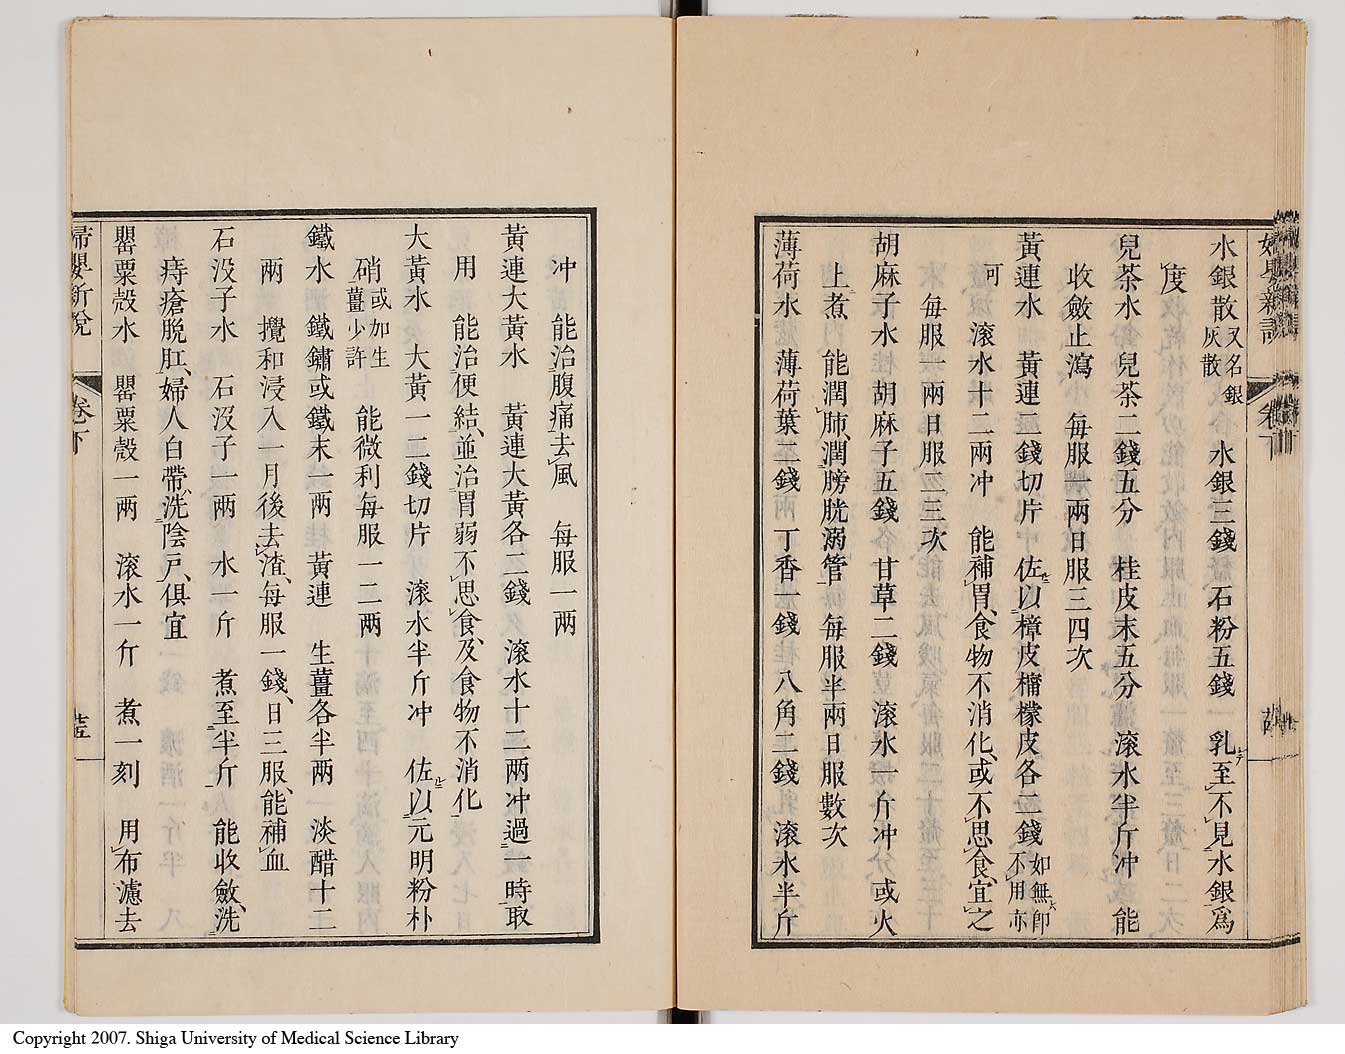 水銀散又名銀灰散 水銀三錢 石粉五錢 乳至不見水銀爲
度
兒茶水 兒茶二錢五分 桂皮末五分 滾水半斤冲 能
收斂止瀉 每服一兩日服三四次
黃連水 黃連二錢切片 佐以樟皮橣檬皮各二錢如無卽不用亦
可 滾水十二兩冲 能補胃食物不消化或不思食宜之
每服一兩日服二三次
胡麻子水 胡麻子五錢 甘草二錢 滾水一斤冲 或火
上煮 能潤肺潤膀胱溺管 每服半兩日服數次
薄荷水 薄荷葉二錢 丁香一錢 八角二錢 滾水半斤
冲 能治腹痛去風 每服一兩
黃連大黃水 黃連大黃各二錢 滾水十二兩冲過一時取
用 能治便結並治胃弱不思食及食物不消化
大黃水 大黃一二錢切片 滾水半斤冲 佐以元明粉朴
硝或加生薑少許 能微利每服一二兩
鐵水 鐵鏽或鐵末一兩 黃連 生薑各半兩 淡醋十二
兩 攪和浸入一月後去渣每服一錢日三服能補血
石没子水 石沒子一兩 水一斤 煮至半斤 能收斂洗
痔瘡脫肛婦人白帶洗陰戸俱宜
罌粟殼水 罌粟殼一兩 滾水一斤 煮一刻 用布濾去
婦嬰新說 卷下
Copyright 2007. Shiga University of Medical Science Library